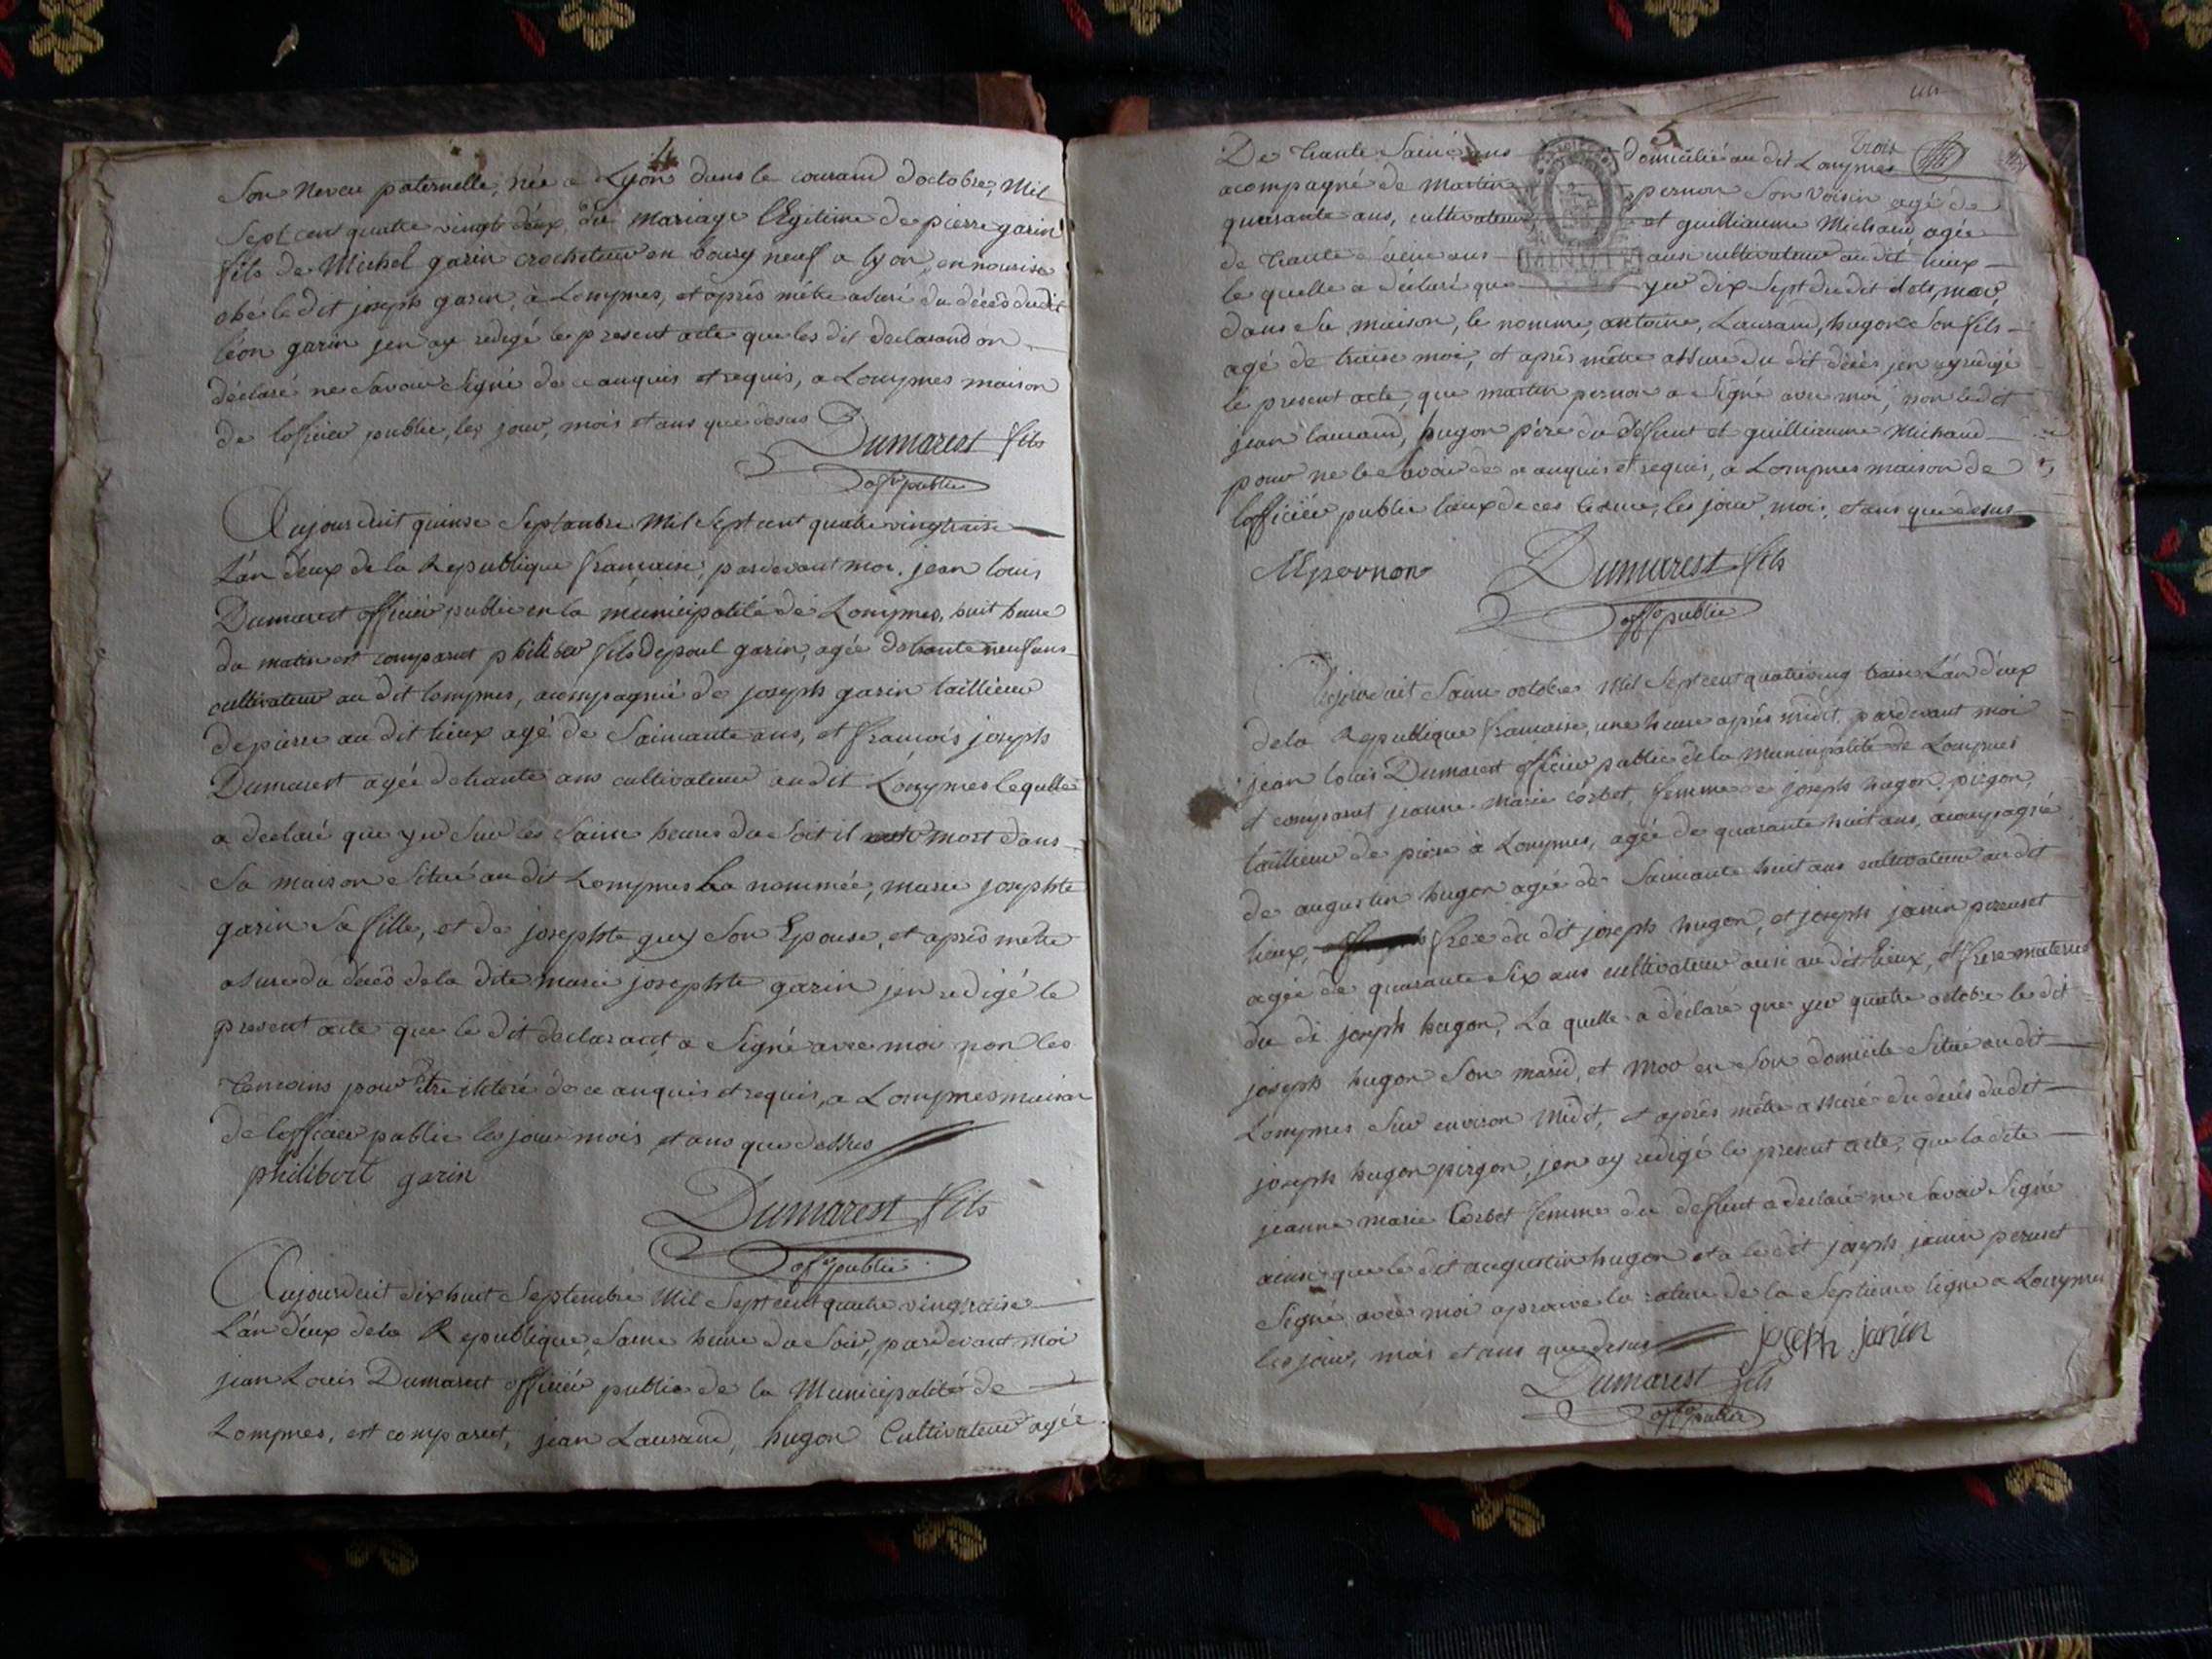 4
Son Neveu paternelle, née a Lyon dans le courand d'octobre, Mil
Sept cent quatre vingt deux, du mariage lEgitime de pierre garin
fils de Michel garin crocheteur en bourg neuf a lyon, en nourise
ché le dit joseph garin, à Lompnes, et après mêtre assuré du décès du dit
léon garin jen ay redigé le present acte que les dit declarand on
déclaré ne Savoir Signé de ce anquis et requis, a Lompnes maison
de lofficier public, les jour, mois et ans que desus
Dumarest fils
offr public
Aujourduit quinse Septanbre Mil Sept cent quatre vingtraise
L'an deux de la Republique franc̄aise, pardevant moi jean louis
Dumarest officièr public en la municipalité de Lompnes, huit heure
du matin est comparut philiber fils depaul garin, agée de trante neuf ans
cultivateur au dit lompnes, acompagnié de joseph garin taillieur
de pierre au dit lieux agé de Saimante ans, et francois joseph
Dumarest agée de trante ans cultivateur au dit Lompnes lequelle
a declaré que yer Sur les Saint heures du Soit il mort dans
Sa maison Situé au dit Lompnes La nommée, marie josephte
garin Sa fille, et de josephte guy Son Epouse, et après mêtre
assure du décès de la dite marie josephte garin jen redigé le
present acte que le dit declarant a Signé avec moi non les
temoins pour être iléteré de ce anquis et requis, a Lompnes maison
de lofficier public les jour mois et ans que desus
philibert garin
Dumarest fils
offr public
Aujourduit dixhuit Septembre Mil Sept cent quatre vingtraise
L'an deux de la Republique, Saint heure du Soir, pardevant moi
jean Louis Dumarest officièr public de la Municipalité de
Lompnes, est comparut, jean Laurand, hugon Cultivateur agée
5 trois
De trante Saint ans domicilié au dit Lompnes
acompagné de Martin pernon Son voisin agé de
quarante ans, cultivateur et guilliaume Michaud agée
de trante ans ausi cultivateur au dit lieux
MINUTE
le quelle a déclaré que yer dix Sept du dit
dans Sa maison, le nommé, antoine, Laurand, hugon Son fils
agé de traise moi, et après mêtre assure du dit décès jen ay redigé
le present acte, que martin pernon a Signé avec moi, non le dit
jean laurand, hugon père du défunt et guilliaume Michaud
pour ne le Savoir de ce anquis et requis, a Lompnes maison de
lofficièr public les jour, mois, et ans que desus
Mpernon
Dumarest fils
offr public
Aujourduit Saint octobre Mil Sept cent quatreving traise L'an deux
de la Republique francaise, une heure après midit, pardevant moi
jean louis Dumarest officier public de la Municipalité de Lompnes
et comparut jeanne marie Corbet, femme de joseph hugon pirgon,
taillieur de pierre à Lompnes, agée de quarante huit ans, acompagnie
de augustin hugon agée de Saimante huit ans cultivateur au dit
lieux, frere du dit joseph hugon, et joseph janin peruset
agée de quarante Six ans cultivateur ausi au dit lieux, et frere maternel
du di joseph hugon, La quelle a déclaré que yer quatre octobre le dit
joseph hugon Son marid, et mor en Son domicile Situé au dit
Lompnes Sur environ Midit, et après mêtre assuré du décès du dit
joseph hugon pirgon, jen ay redigé le present acte, que la dite
jeanne marie Corbet femme du deffunt a declaré ne Savoir Signé
ainsi que le dit augustin hugon et a le dit joseph janin peruset
Signé avec moi aprouve la rature de la Septieme ligne a Lompnes
les jour, mois et ans que desus
joseph janin
Dumarest fils
offr public